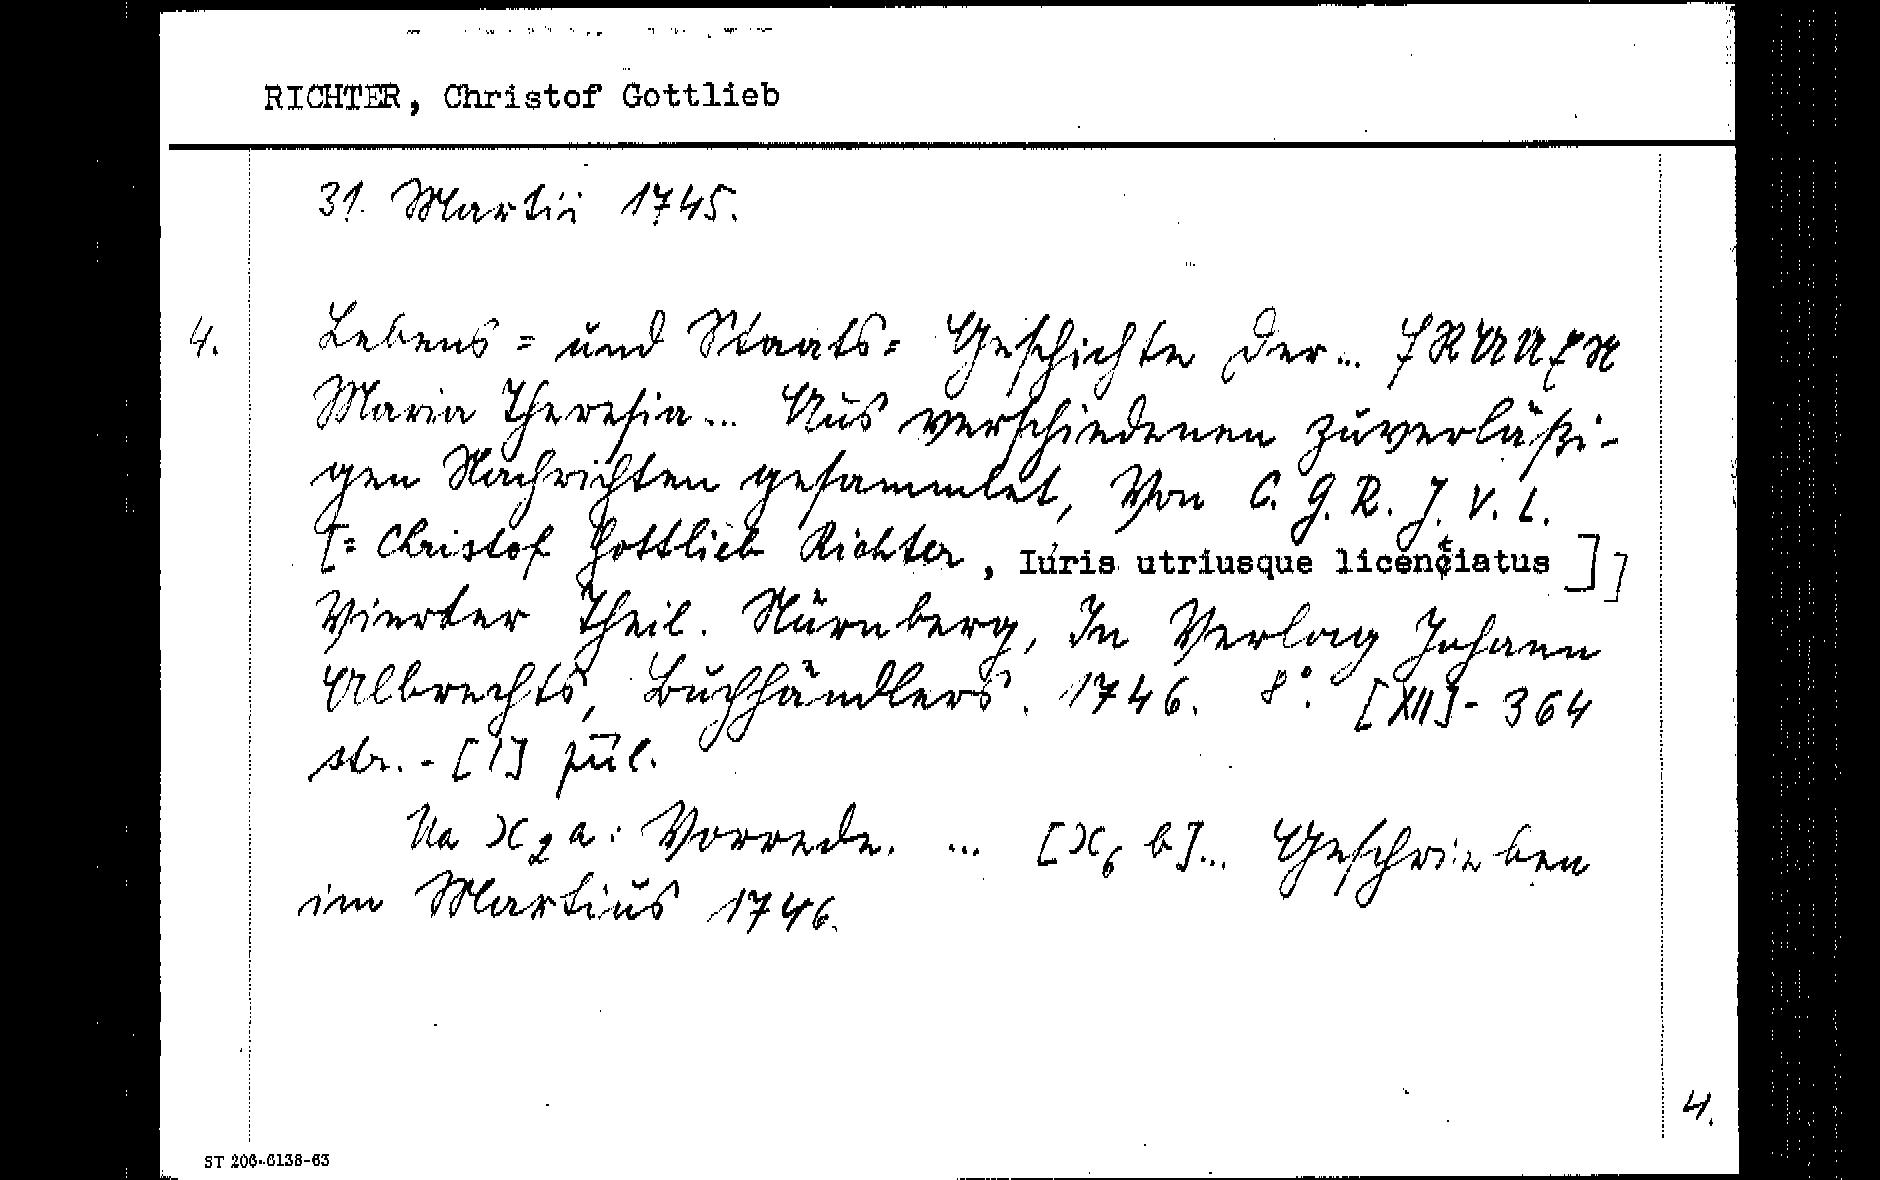 RICHTER, Christof Gottlieb
31. Martii 1745.
4. Lebens= und Staats= Geschichte der... FRAUEN
Maria Theresia... Aus verschiedenen zuverläßi-
gen Nachrichten gesammlet, Von C. G. R. J. V. L.
[= Christof Gottlieb Richter, Iuris utriusque licentiatus]]
Vierter Theil. Nürnberg, In Verlag Johann
Albrechts, Buchhändlers. 1746. 8°. [XII]- 364
str. - [1] pül.
Na X2a: Vorrede. ... [X6 b]... Geschrieben
im Martius 1746.
4.
ST 206-6138-63